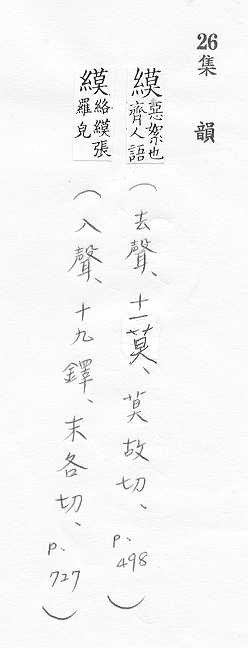 26 集韻
縸 惡絮也 齊人語 (去聲、十一莫、莫故切、p、498)
縸 絡縸張 羅皃 (入聲、十九鐸、末各切、p、727)